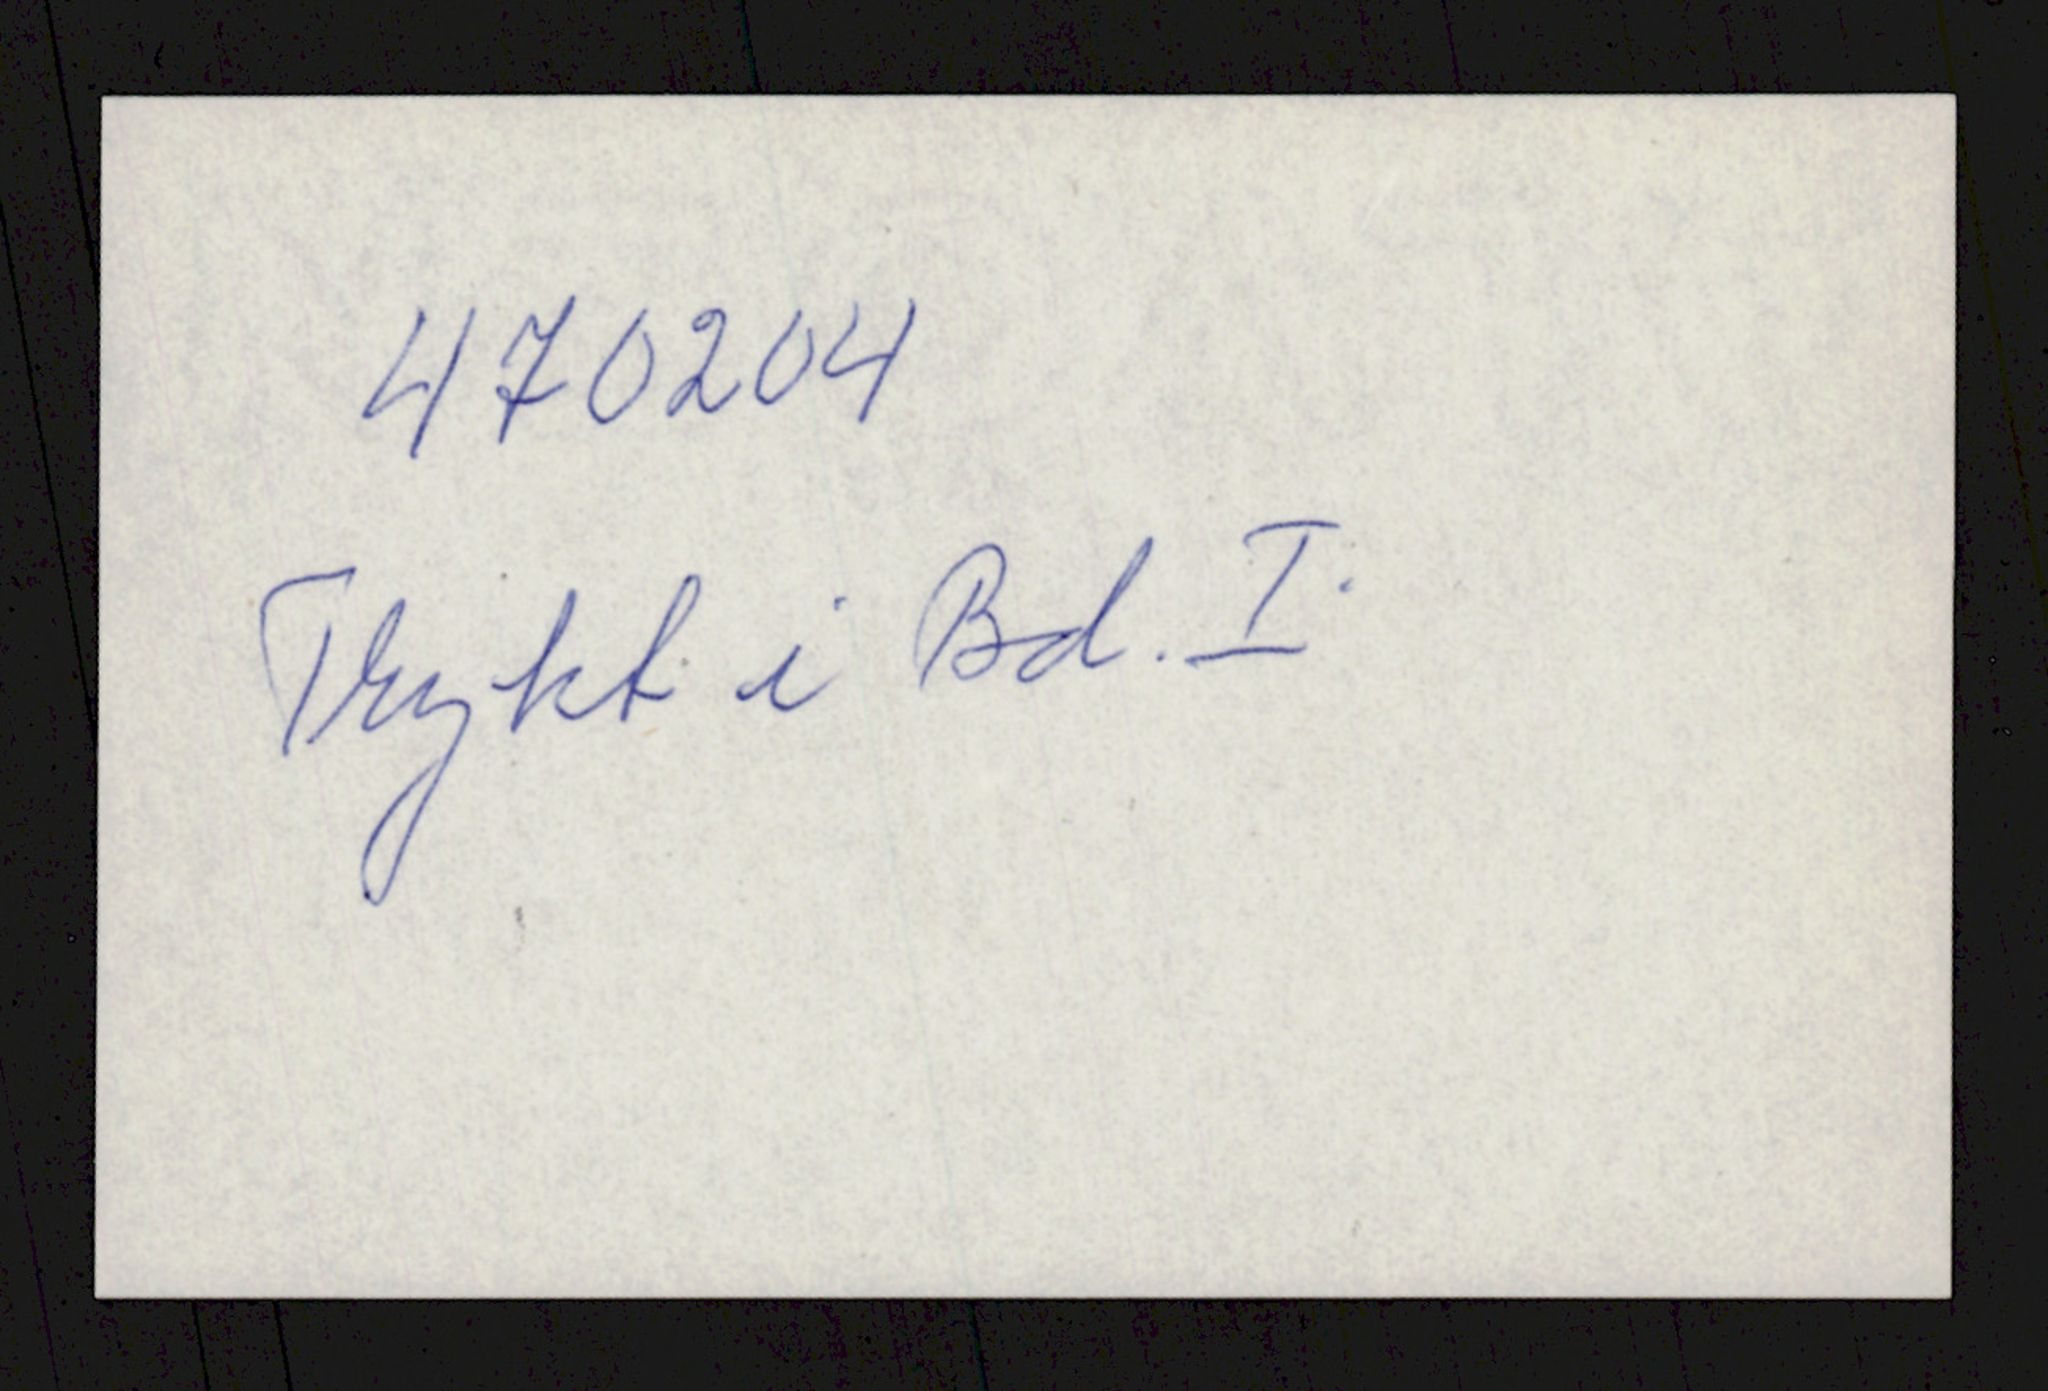 470204
Trykt i Bd. I.